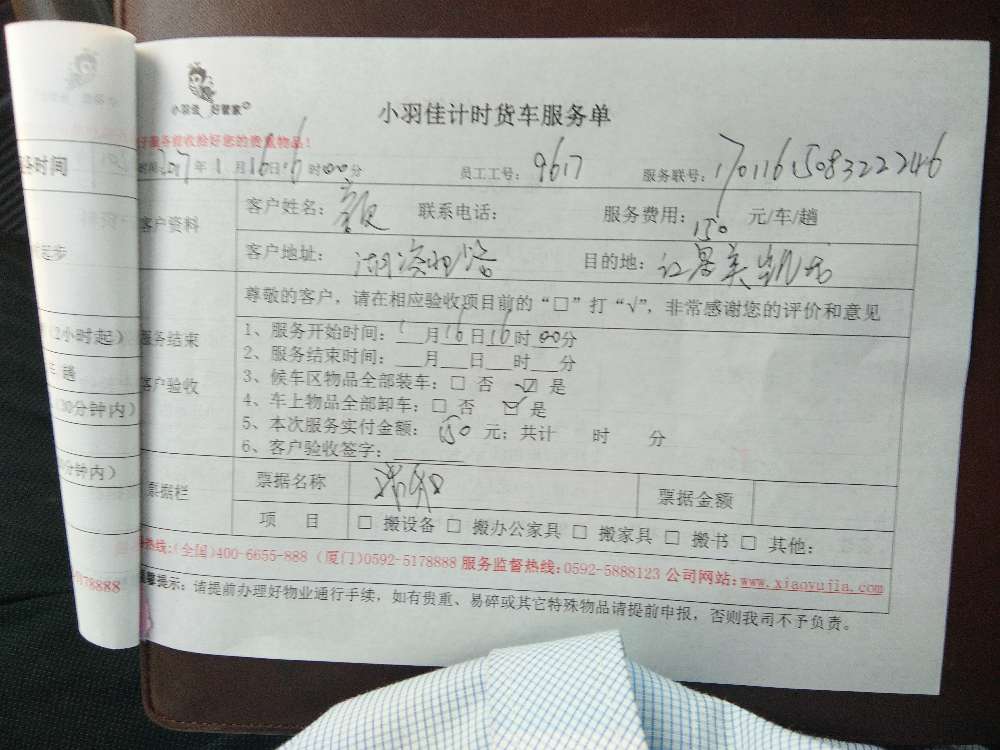 小羽佳 好管家
小羽佳计时货车服务单
服务前收拾好您的贵重物品！
时间2017年1月16日16时00分 员工工号：9617 服务联号：17011615083222246
客户资料
客户姓名： 联系电话： 服务费用：150元/车/趟
客户地址： 目的地：
尊敬的客户，请在相应验收项目前的“□”打“√”，非常感谢您的评价和意见
服务结束
客户验收
1、服务开始时间：1月16日16时00分
2、服务结束时间：___月___日___时___分
3、候车区物品全部装车：□ 否 ☑ 是
4、车上物品全部卸车：□ 否 ☑ 是
5、本次服务实付金额：150元；共计 时 分
6、客户验收签字：
票据栏
票据名称 票据金额
项 目 □ 搬设备 □ 搬办公家具 □ 搬家具 □ 搬书 □ 其他：
热线：(全国)400-6655-888 (厦门)0592-5178888 服务监督热线：0592-5888123 公司网站：www.xiaoyujia.com
提示：请提前办理好物业通行手续，如有贵重、易碎或其它特殊物品请提前申报，否则我司不予负责。
时间
起步
(2小时起)
趟
(30分钟内)
分钟内)
78888